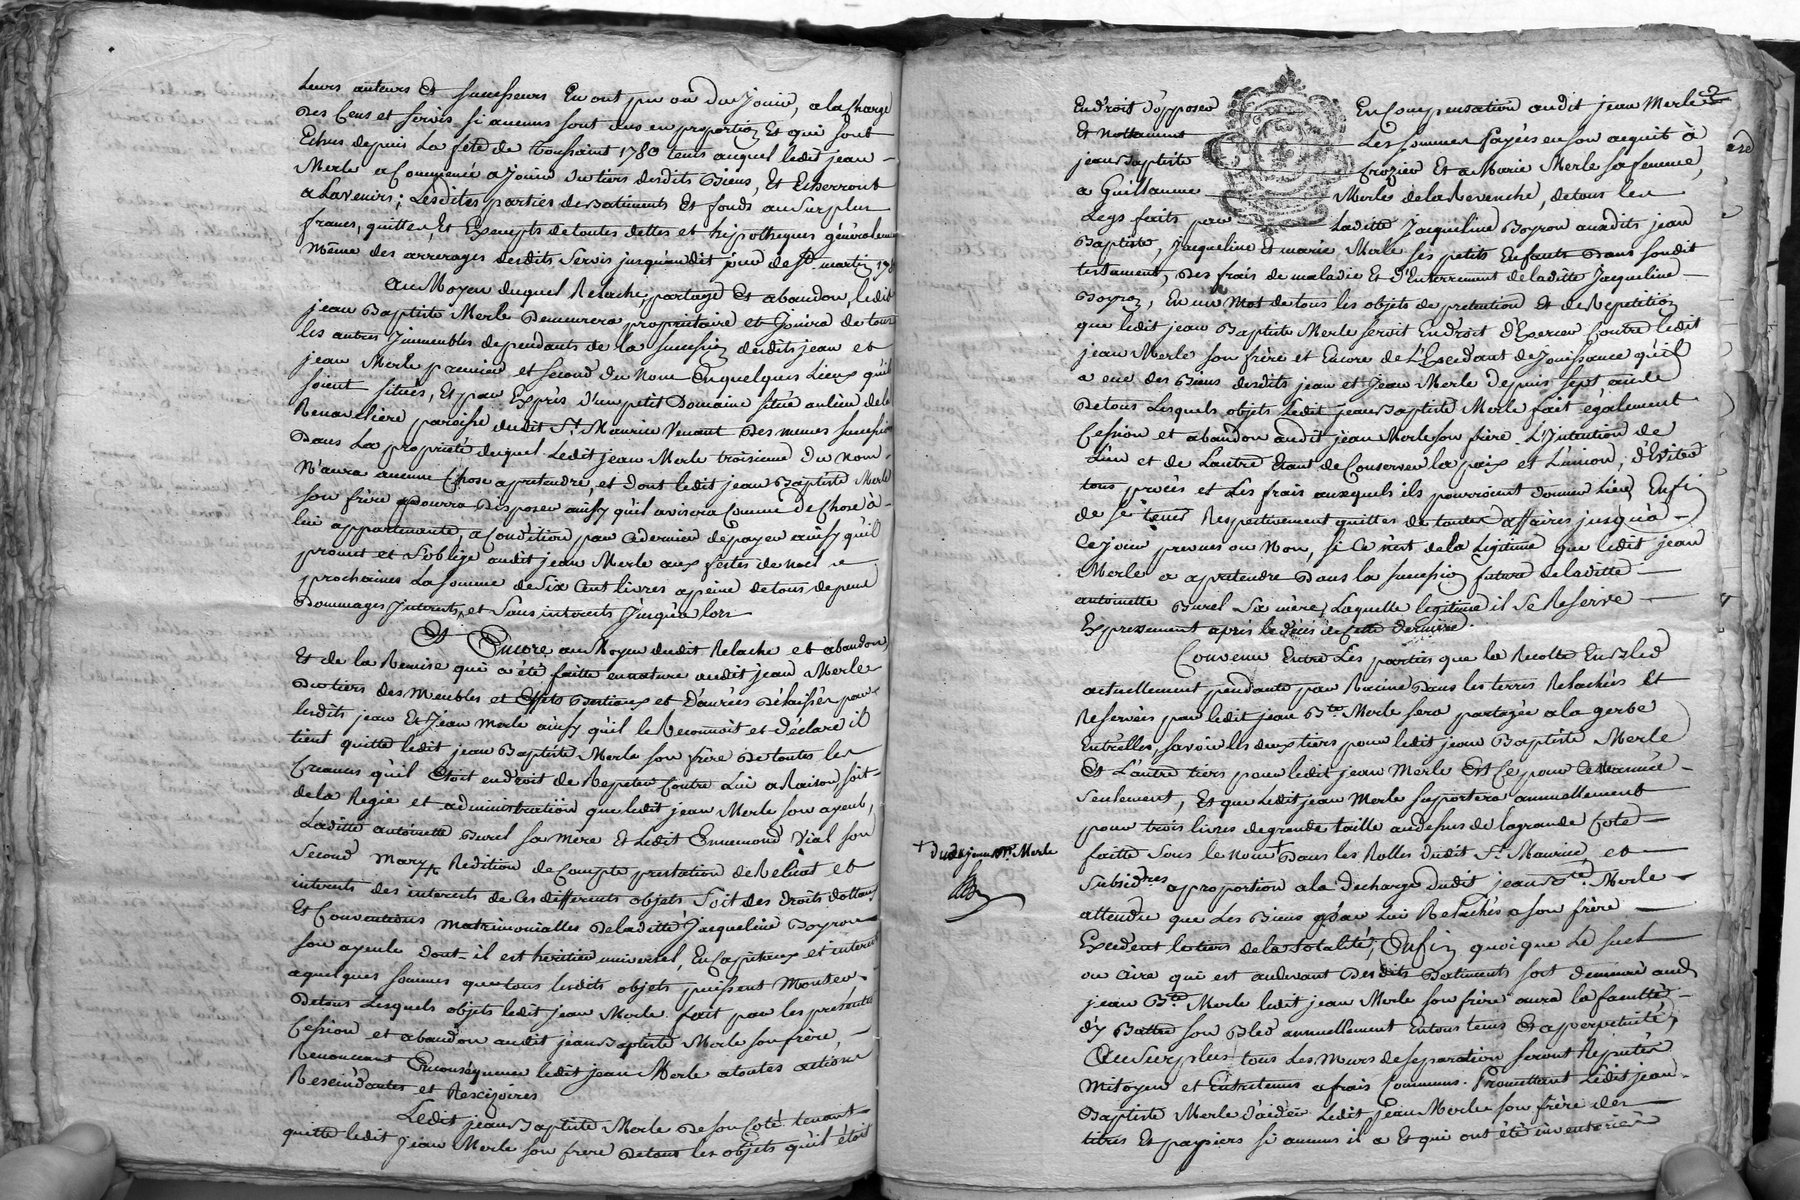 Leurs auteurs Et successeurs En ont pu ou du Jouir, a la Charge
Des Cens et servis si aucuns sont dus en proportion Et qui sont
Echus depuis La fête de Toussaint 1780 tems auquel ledit jean
Merle a Commencé a Jouir du tiers desdits Biens, Et Echerront
a Lavenir; Lesdites parties de Batiments Et fonds au Surplus
francs, quittes, Et Exempts de toutes dettes et hipotheques généralement
Même des arrerages desdits Servis jusquaudit jour de St martin 178
Au Moyen duquel Relache, partage Et abandon, ledit
jean Baptiste Merle Demeurera propriétaire et Jouira de tous
les autres Immeubles dependants de la succession desdits jean et
jean Merle premier et second du Nom En quelques Lieux qu'ils
soient situés, Et par Exprès d'un petit Domaine situé au lieu de la
Renaveliere paroisse dudit St Maurice Venant Des mêmes successions
Dans La propriété duquel Ledit jean Merle troisieme du Nom
N'aura aucune Chose a pretendre, et dont ledit jean Baptiste Merle
son frère pourra Disposer ainsy qu'il avisera Comme de Chose à
lui appartenante, a Condition par Ce dernier de payer ainsy qu'il
promet et S'oblige audit jean Merle aux fêtes de noel
prochaines La somme de Six Cent livres a peine de tous depens
Dommages Interets, et Sans interets Jusqu'a lors
Et Encore au Moyen dudit Relache et abandon,
Et de la Remise qui a été faitte en nature audit jean Merle
Du tiers des Meubles et Effets Bestiaux et Danrées Délaissés par
lesdits jean Et Jean Merle ainsy qu'il le Reconnoit et déclare il
tient quitte ledit jean Baptiste Merle son frère De toutes les
Creances qu'il étoit en droit de Repeter Contre Lui a Raison, soit
de la Regie et administration que ledit jean Merle son ayeul,
Laditte antoinette Burel sa mère Et Ledit Ennemond Vial son
Second Mary, Redition de Compte prestation de Reliqat et
interets des interets de Ces differents objets Soit des Droits dottaux
Et Conventions Matrimonialles De laditte Jacqueline Boyron
son ayeule dont il est héritier universel, En Capitaux et interets
a quelques sommes que tous lesdits objets puissent Monter
De tous Lesquels objets ledit jean Merle fait par les presentes
Cession et abandon audit jean Baptiste Merle son frère,
Renonceant Enconséquence ledit jean Merle a toutes actions
Rescindantes et Rescizoires
Ledit jean Baptiste Merle De son Coté tenant
quitte ledit Jean Merle son frère De tous les objets qu'il étoit
Endroit d'opposer En Compensation audit jean Merle
Et Nottamment Les sommes Payées en son acquit à
jean Baptiste Crozier Et a Marie Merle sa femme,
a Guillaume Merle de la Revenche, de tous les
Legs faits par Laditte Jacqueline Boyron auxdits jean
Baptiste, Jacqueline Et marie Merle ses petits Enfants Dans son dit
testament, Des frais de maladie Et D'Enterrement de laditte Jacqueline
Boyron, En un Mot de tous les objets de pretention Et de Repetition
que ledit jean Baptiste Merle seroit Endroit d'Exercer Contre ledit
jean Merle son frère et Encore de L'Excedant de jouissance qu'il
a eue des Biens desdits jean et Jean Merle depuis sept ans
De tous Lesquels objets Ledit jean Baptiste Merle fait également
Cession et abandon audit jean Merle son frère. L'Intention de
L'un et de Lautre Etant de Conserver la paix et L'union, d'Eviter
tous procès et Les frais auxquels ils pourroient donner Lieu Enfin
de se tenir Respectivement quittes de toutes affaires jusqu'à
Ce jour prevues ou Non, si Ce n'est de la Legitime que ledit jean
Merle a a pretendre Dans la succession future de laditte
antoinette Burel Sa mère, Laquelle legitime il se Reserve
Expressement après le decès de Cette derniere.
Convenu Entre Les parties que la Recolte En Bled
actuellement pendante par Racine Dans les terres Relachées Et
Reservées par ledit jean Bte Merle sera partagée a la gerbe
Entr'elles, savoir les deux tiers pour ledit jean Baptiste Merle
Et L'autre tiers pour ledit jean Merle Et Ce pour Cette année
seulement, Et que Ledit jean Merle suportera annuellement
pour trois livres de grande taille au dessus de la grande Cote
faitte sous le Nom + Dans les Rolles dudit St Maurice et
+ Dudit jean Bte Merle
Subsidres a proportion a la decharge dudit jean Bte Merle
attendu que Les Biens par Lui Relachés a son frère
Excedent le tiers de la totalité; Enfin quoique Le suel
ou aire qui est audevant Desdits Batiments soit demeuré aud
jean Bte Merle ledit jean Merle son frère aura la faculté
d'y Battre son Bled annuellement En tous tems Et a perpetuité;
Au Surplus tous Les Murs de separation seront Réputés
Mitoyens et Entretenus a frais Communs. Promettant Ledit jean
Baptiste Merle d'aider Ledit jean Merle son frère des
titres Et papiers si aucuns il a Et qui ont été inventoriés